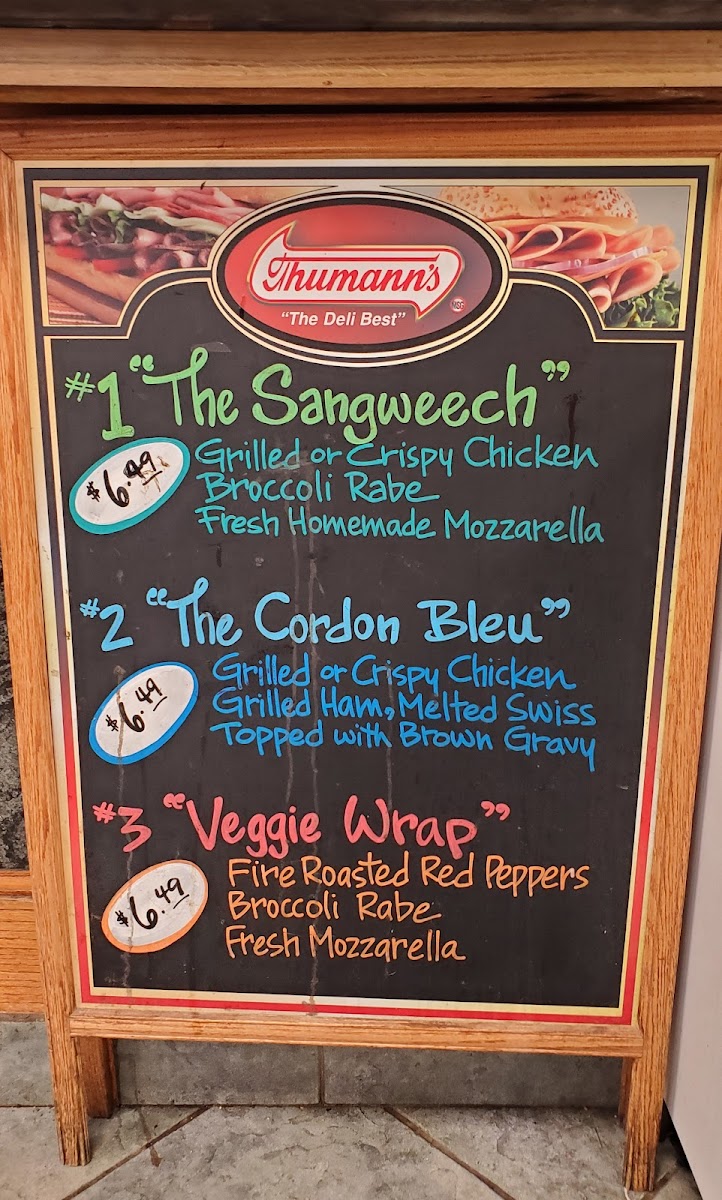 Thumann's
"The Deli Best"
MSG
#1 "The Sangweech"
$6.49
Grilled or Crispy Chicken
Broccoli Rabe
Fresh Homemade Mozzarella
#2 "The Cordon Bleu"
$6.49
Grilled or Crispy Chicken
Grilled Ham, Melted Swiss
Topped with Brown Gravy
#3 "Veggie Wrap"
$6.49
Fire Roasted Red Peppers
Broccoli Rabe
Fresh Mozzarella